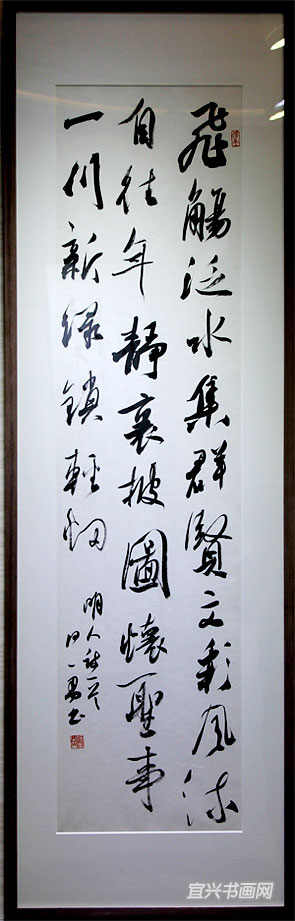 飛觴泛水集群賢文彩風流
自往年靜裏披圖懷聖事
一川新绿鎖輕烟
明人詩一首
宜兴书画网